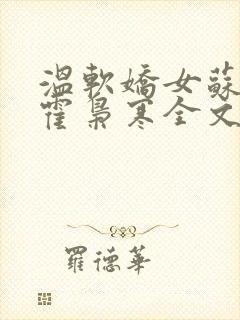 溫軟嬌女蘇
霍梟寒全文
羅德華